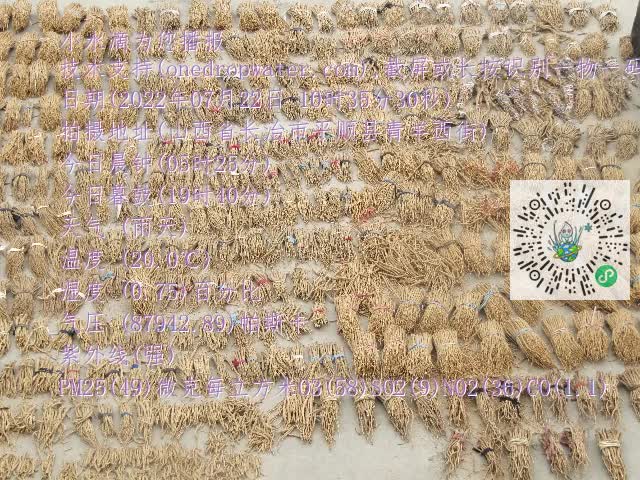 小水滴为您播报
技术支持(onedropwater.com),截屏或长按识别一物一码
日期(2022年07月22日 16时35分36秒)
拍摄地址(山西省长治市平顺县青羊西街)
今日晨钟(05时25分)
今日暮鼓(19时40分)
天气 (雨天)
温度 (20.0℃)
湿度 (0.75)百分比
气压 (87942.89)帕斯卡
紫外线(强)
PM25(19)微克每立方米O3(58)SO2(9)NO2(36)CO(1.1)